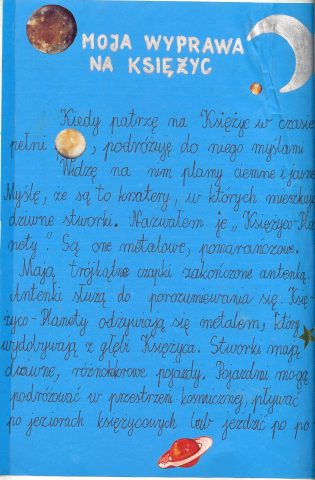 MOJA WYPRAWA
NA KSIĘŻYC
Kiedy patrzę na Księżyc w czasie
pełni , podróżuję do niego myślami
Widzę na nim plamy ciemne i jasne
Myślę, że są to kratery, w których mieszkają
dziwne stworki. Nazwałem je „Księżyco-Pla
nety". Są one metalowe, pomarańczowe.
Mają trójkątne czapki zakończone antenką.
Antenki służą do porozumewania się. Księ-
życo-Planety odżywiają się metalem, który
wydobywają z głębi Księżyca. Stworki mają
dziwne, różnokolorowe pojazdy. Pojazdmi mogą
podróżować w przestrzeni kosmicznej, pływać
po jeziorach księżycowych lub jeździć po po-